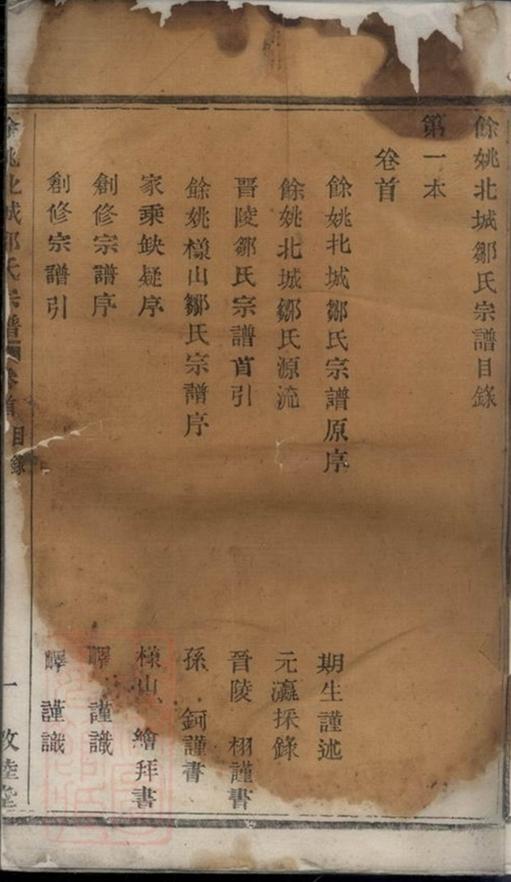 餘姚北城鄒氏宗譜目錄
第一本
卷首
餘姚北城鄒氏宗譜原序 期生謹述
餘姚北城鄒氏源流 元瀛採錄
晋陵鄒氏宗譜首引 晋陵 栩謹書
餘姚樣山鄒氏宗譜序 孫 鈳謹書
家乘缺疑序 樣山 繪拜書
創修宗譜序 嶧謹識
創修宗譜引 嶧謹識
餘姚北城鄒氏宗譜 卷首 目錄 一 敦睦堂